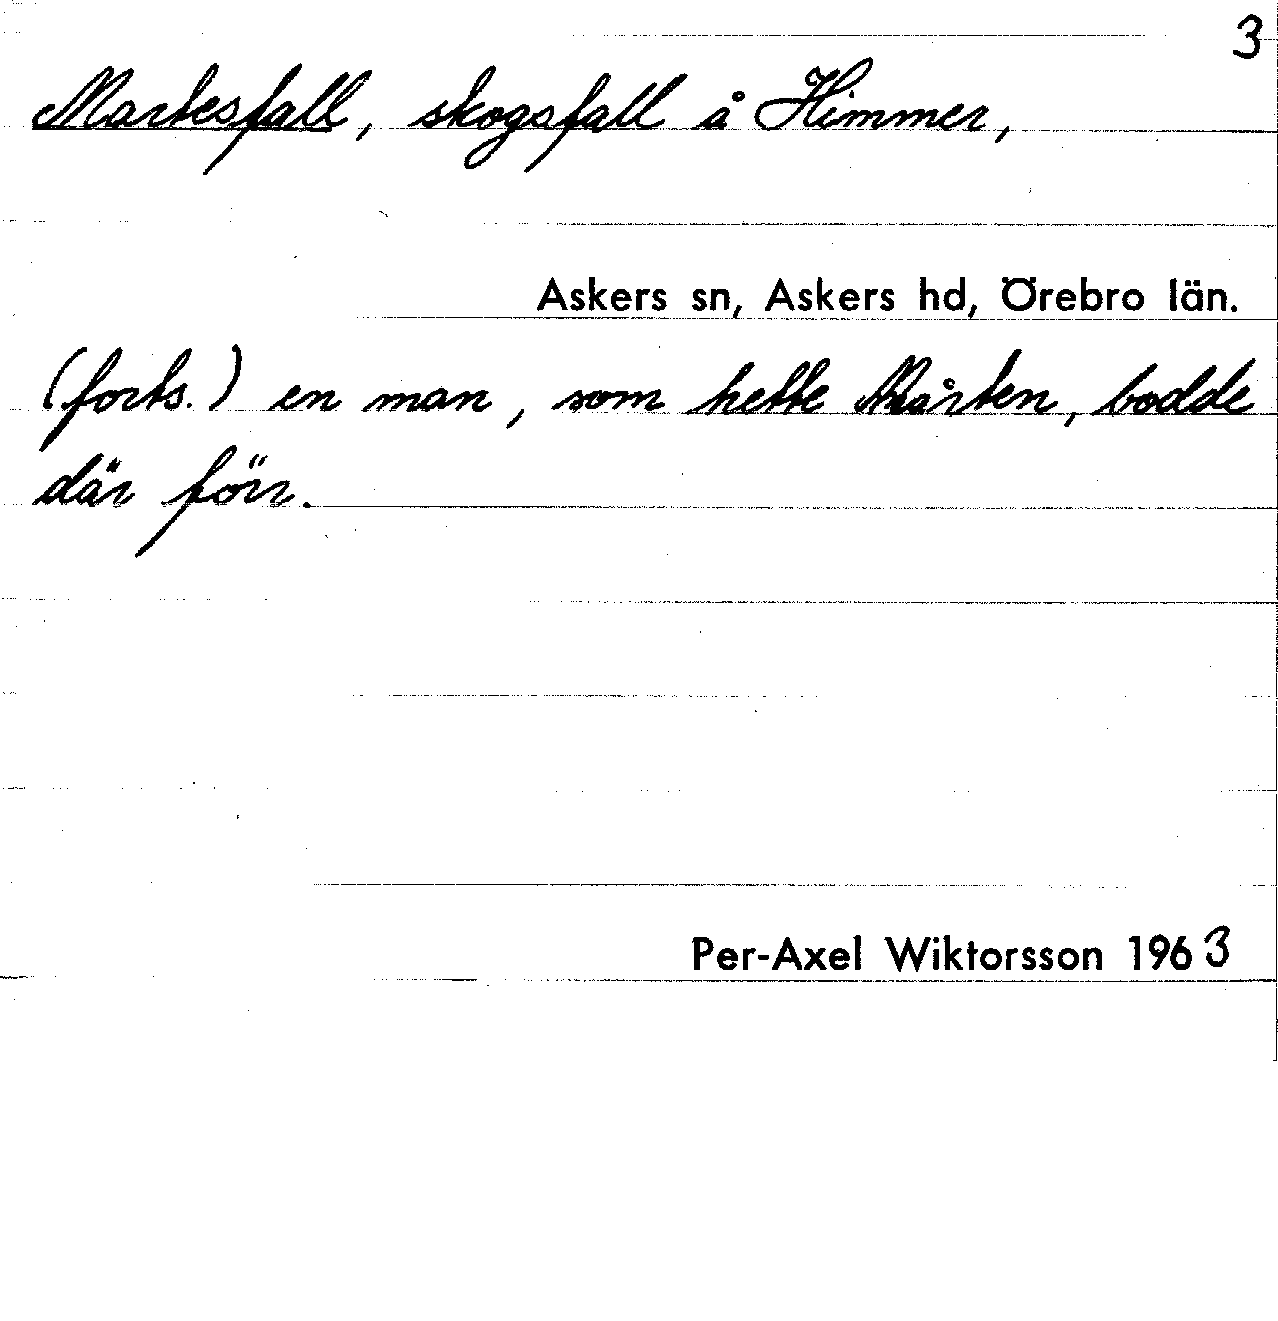 3
Martesfall, skogsfall å Himmer,
Askers sn, Askers hd, Örebro län.
(forts.) en man, som hette Mårten, bodde
där förr.
Per-Axel Wiktorsson 1963